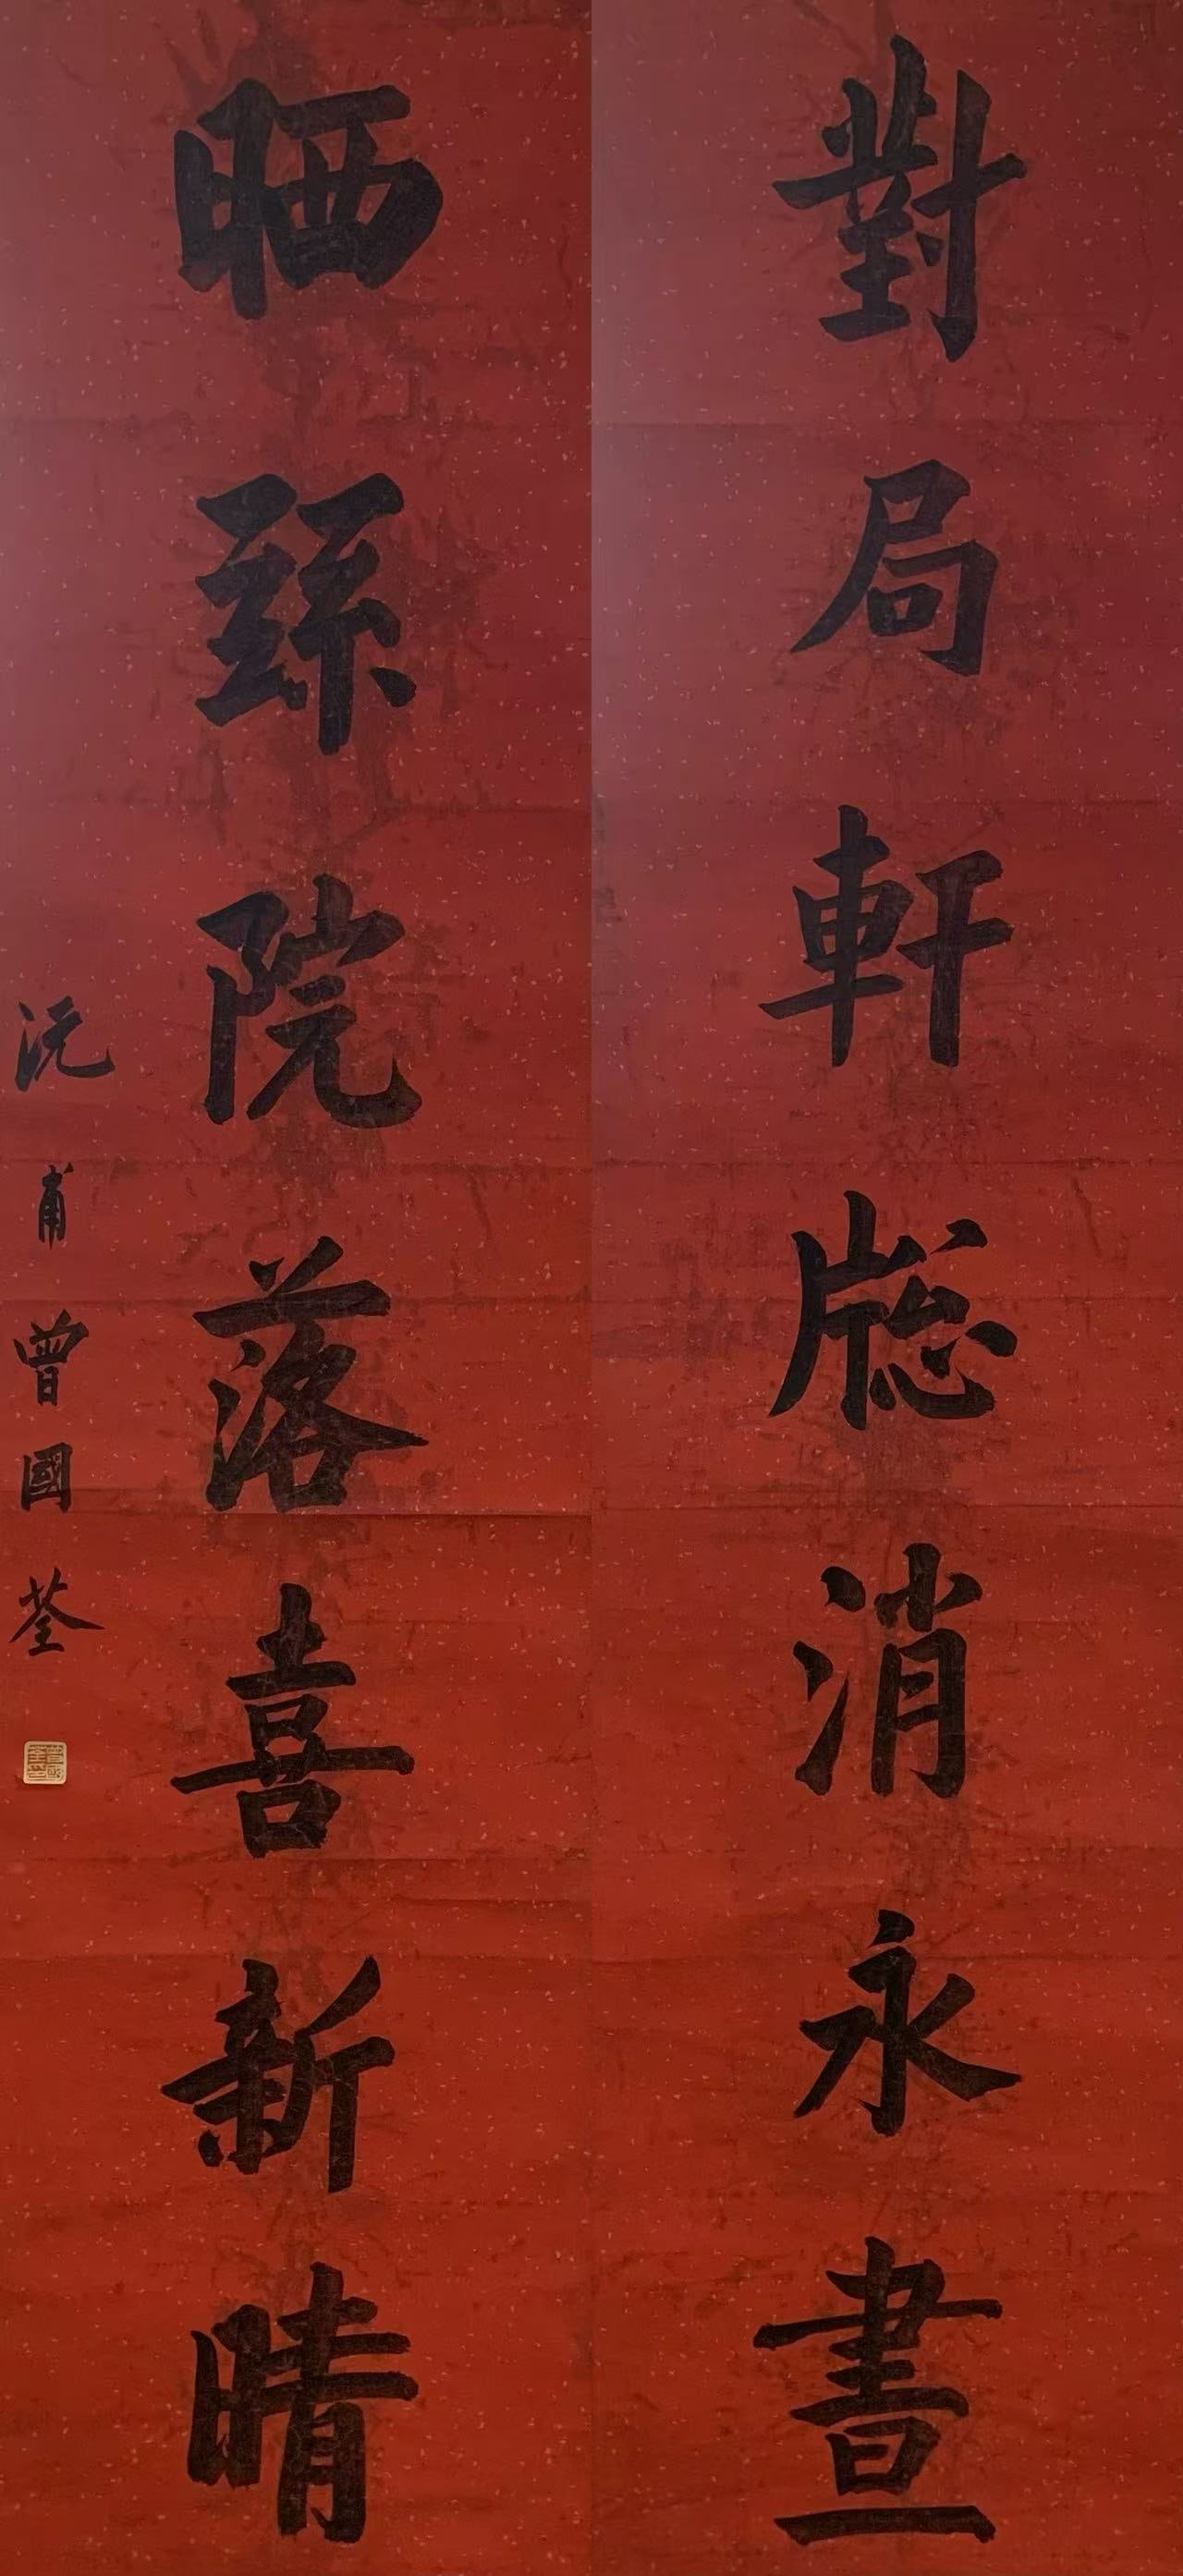 對局軒牎消永晝
晒繇院落喜新晴
沅甫曾國荃